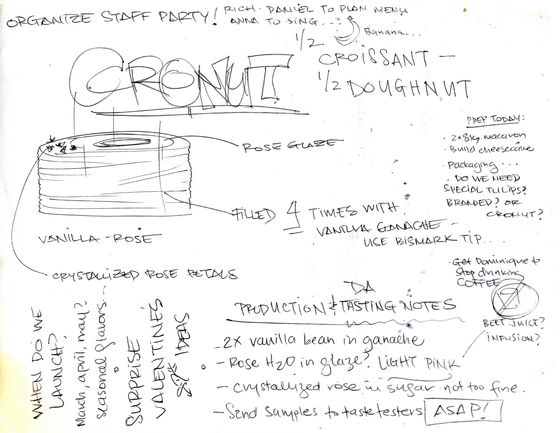 ORGANIZE STAFF PARTY!
RICH - DANIEL TO PLAN MENU
ANNA TO SING...
Banana...
1/2
CROISSANT —
1/2 DOUGHNUT
CRONUT
PREP TODAY:
· 2x8kg macaron
· Build cheesecake
· Packaging...
· DO WE NEED
SPECIAL TULIPS?
BRANDED? OR
CRONUT?
ROSE GLAZE
FILLED 4 TIMES WITH
VANILLA GANACHE —
USE BISMARK TIP...
VANILLA-ROSE
CRYSTALIZED ROSE PETALS
· Get Dominique to
stop drinking
COFFEE
BEET JUICE?
INFUSION?
WHEN DO WE
LAUNCH?
March, april, may?
seasonal flavors...
SURPRISE
VALENTINES
IDEAS
DA
PRODUCTION & TASTING NOTES
- 2x vanilla bean in ganache
- Rose H2O in glaze? LIGHT PINK
- Crystallized rose in sugar not too fine.
- Send samples to tastetesters ASAP!